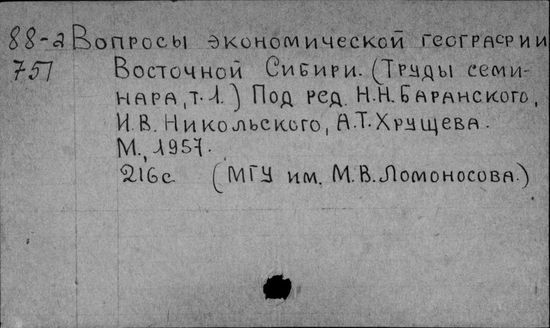 88-2 Вопросы экономической географии
751 Восточной Сибири. (Труды семи-
нара, т. 1.) Под ред. Н.Н. Баранского,
И.В. Никольского, А.Т. Хрущева.
М., 1957.
216с. (МГУ им. М.В. Ломоносова.)